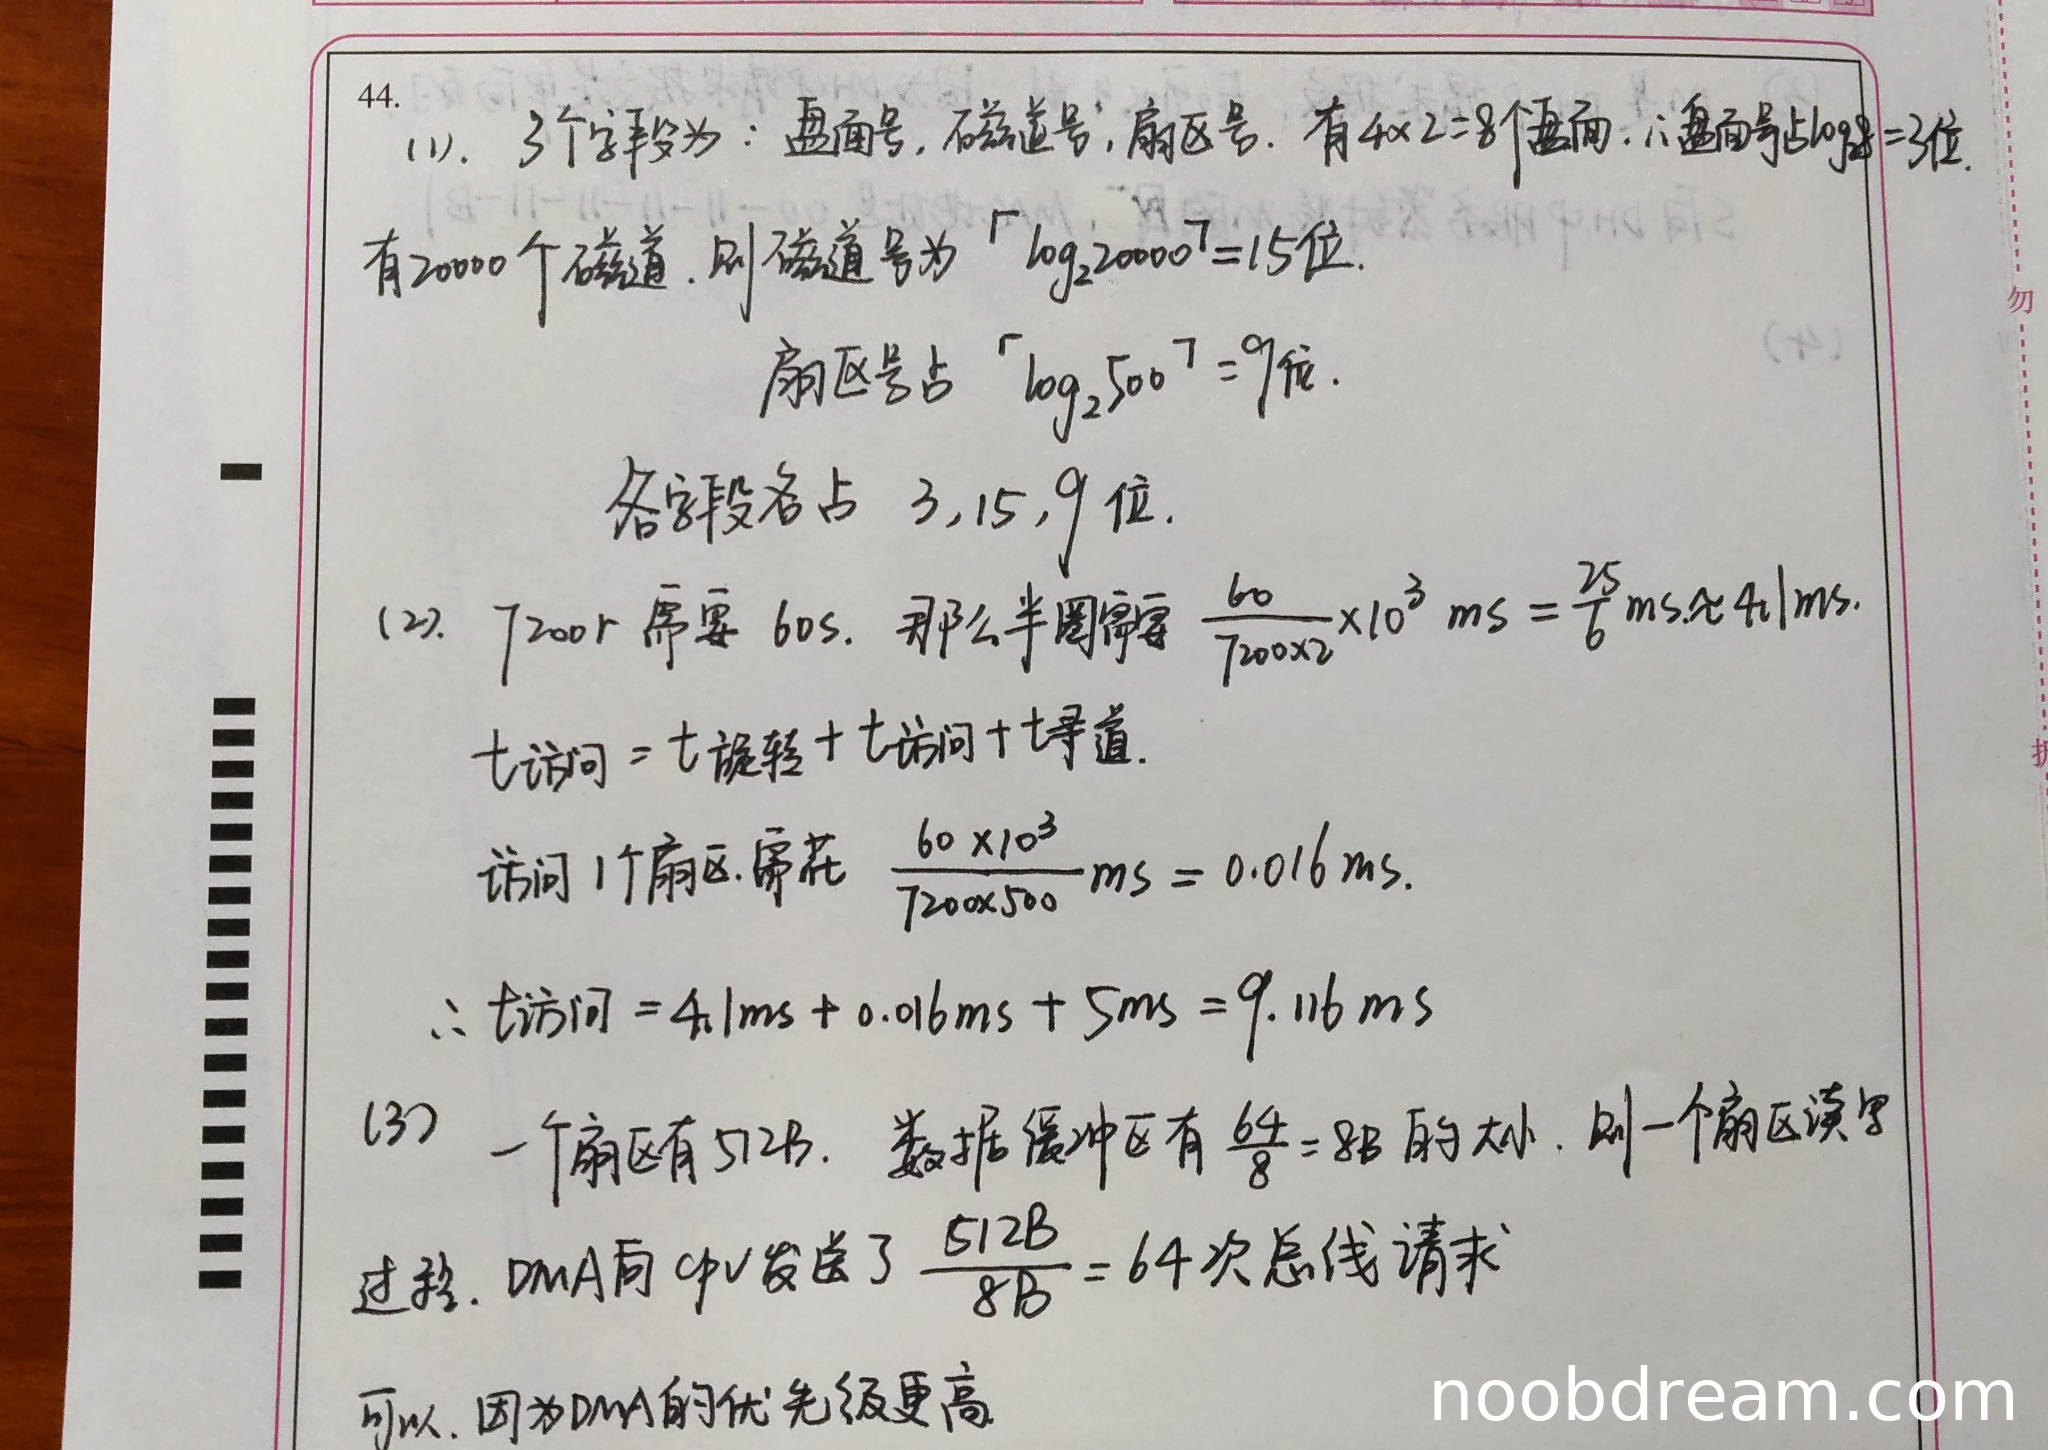 44.
(1). 3个字段为：盘面号，磁道号，扇区号. 有4×2=8个盘面. ∴盘面号占log₂8=3位.
有20000个磁道. 则磁道号为「log₂20000」=15位.
扇区号占「log₂500」=9位.
各字段各占 3, 15, 9 位.
(2). 7200r 需要 60s. 那么半圈需要 60/(7200×2)×10³ ms = 25/6 ms ≈ 4.1ms.
t访问 = t旋转 + t访问 + t寻道.
访问1个扇区.需花 60×10³/(7200×500) ms = 0.016ms.
∴ t访问 = 4.1ms + 0.016ms + 5ms = 9.116ms
(3) 一个扇区有512B. 数据缓冲区有 64/8 = 8B 的大小. 则一个扇区读写
过程. DMA向CPU发送了 512B/8B = 64次总线请求
可以. 因为DMA的优先级更高
勿
noobdream.com